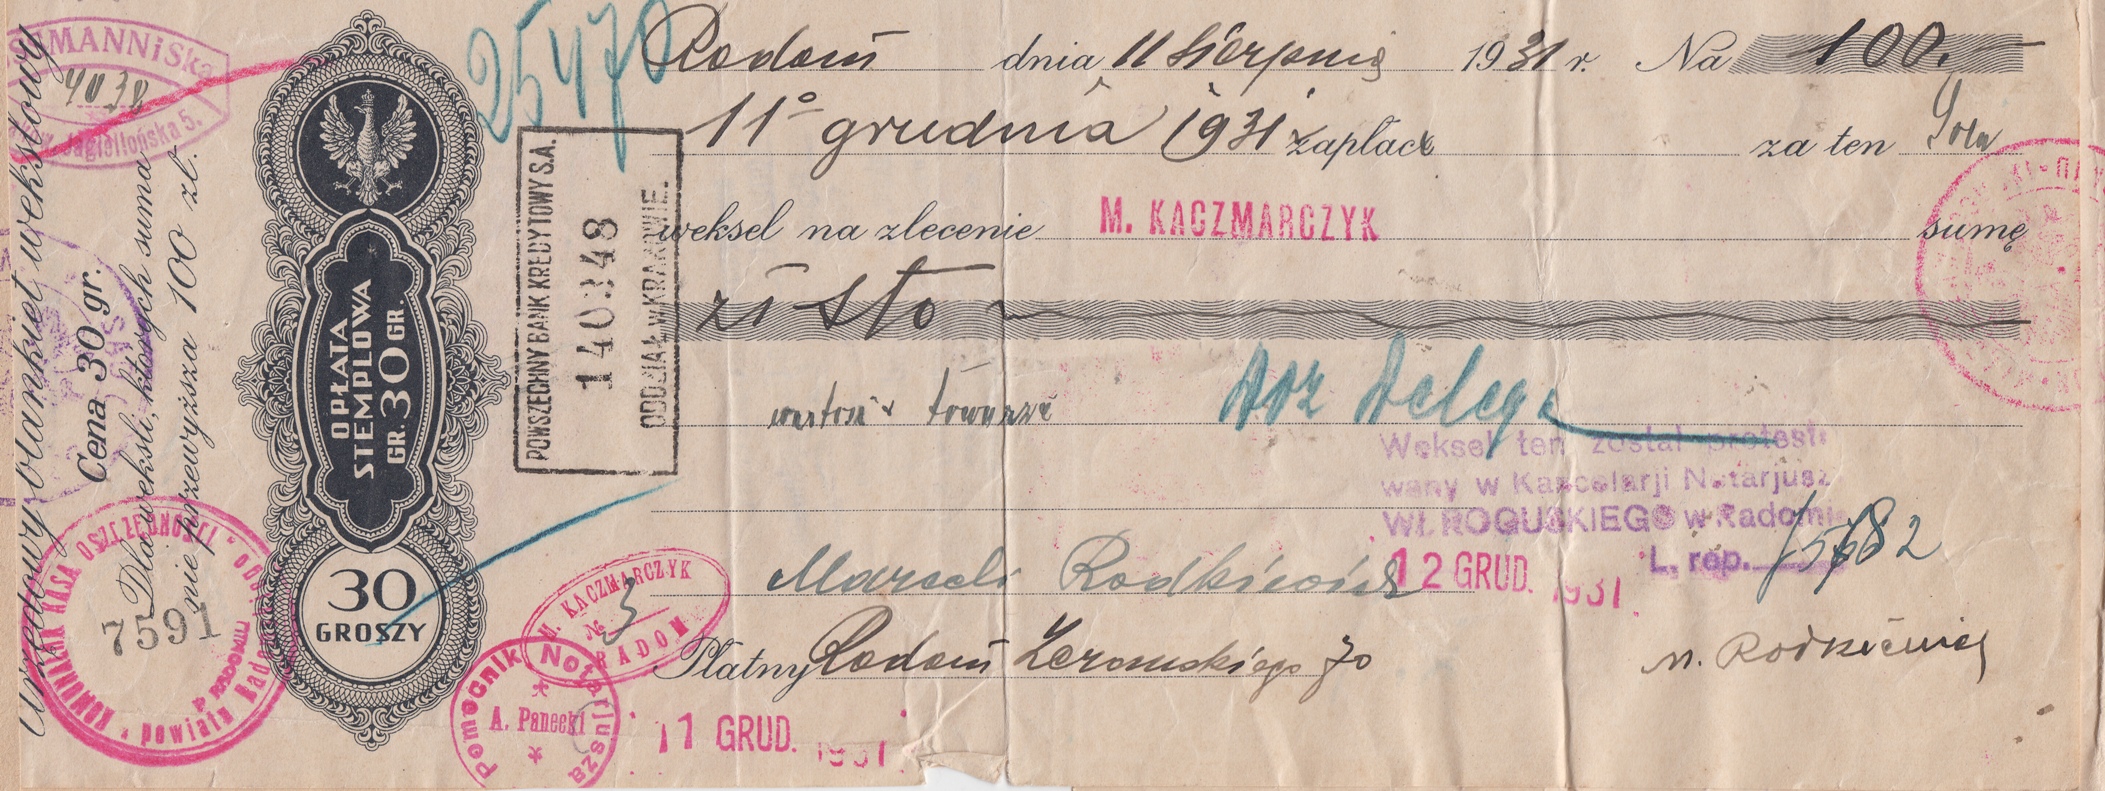 Radom dnia 11 Sierpnia 1931 r. Na 100.
11º grudnia 1931 zapłacę za ten Sola
weksel na zlecenie M. KACZMARCZYK sumę
zł sto
wartość towarze
Weksel ten został protesto
wany w Kancelarji Notarjusz
Wł. ROGUSKIEGO w Radomi
L. rep. 15682
12 GRUD. 1931
Marceli Rodkiewicz
Płatny Radom Żeromskiego 70
M. Rodkiewicz
11 GRUD. 1931
Urzędowy blankiet wekslowy
Cena 30 gr.
Dla weksli, których suma
nie przewyższa 100 zł.
MANN i Ska
4038
Jagiellońska 5.
OPŁATA
STEMPLOWA
GR. 30 GR.
30
GROSZY
25470
POWSZECHNY BANK KREDYTOWY S.A.
140348
ODDZIAŁ W KRAKOWIE.
KOMUNALNA KASA OSZCZĘDNOŚCI
powiatu
W RADOMIU
7591
M. KACZMARCZYK
№ 3
RADOM
Pomocnik Notarjusza
A. Panecki